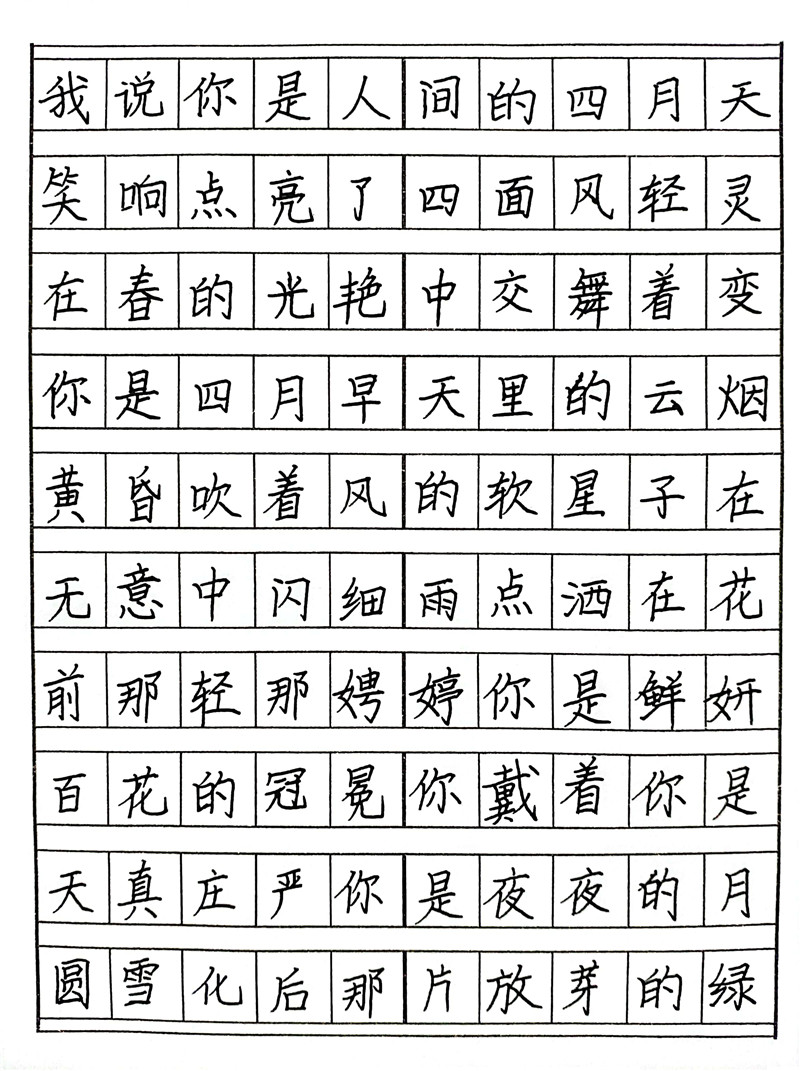 我说你是人间的四月天
笑响点亮了四面风轻灵
在春的光艳中交舞着变
你是四月早天里的云烟
黄昏吹着风的软星子在
无意中闪细雨点洒在花
前那轻那娉婷你是鲜妍
百花的冠冕你戴着你是
天真庄严你是夜夜的月
圆雪化后那片放芽的绿